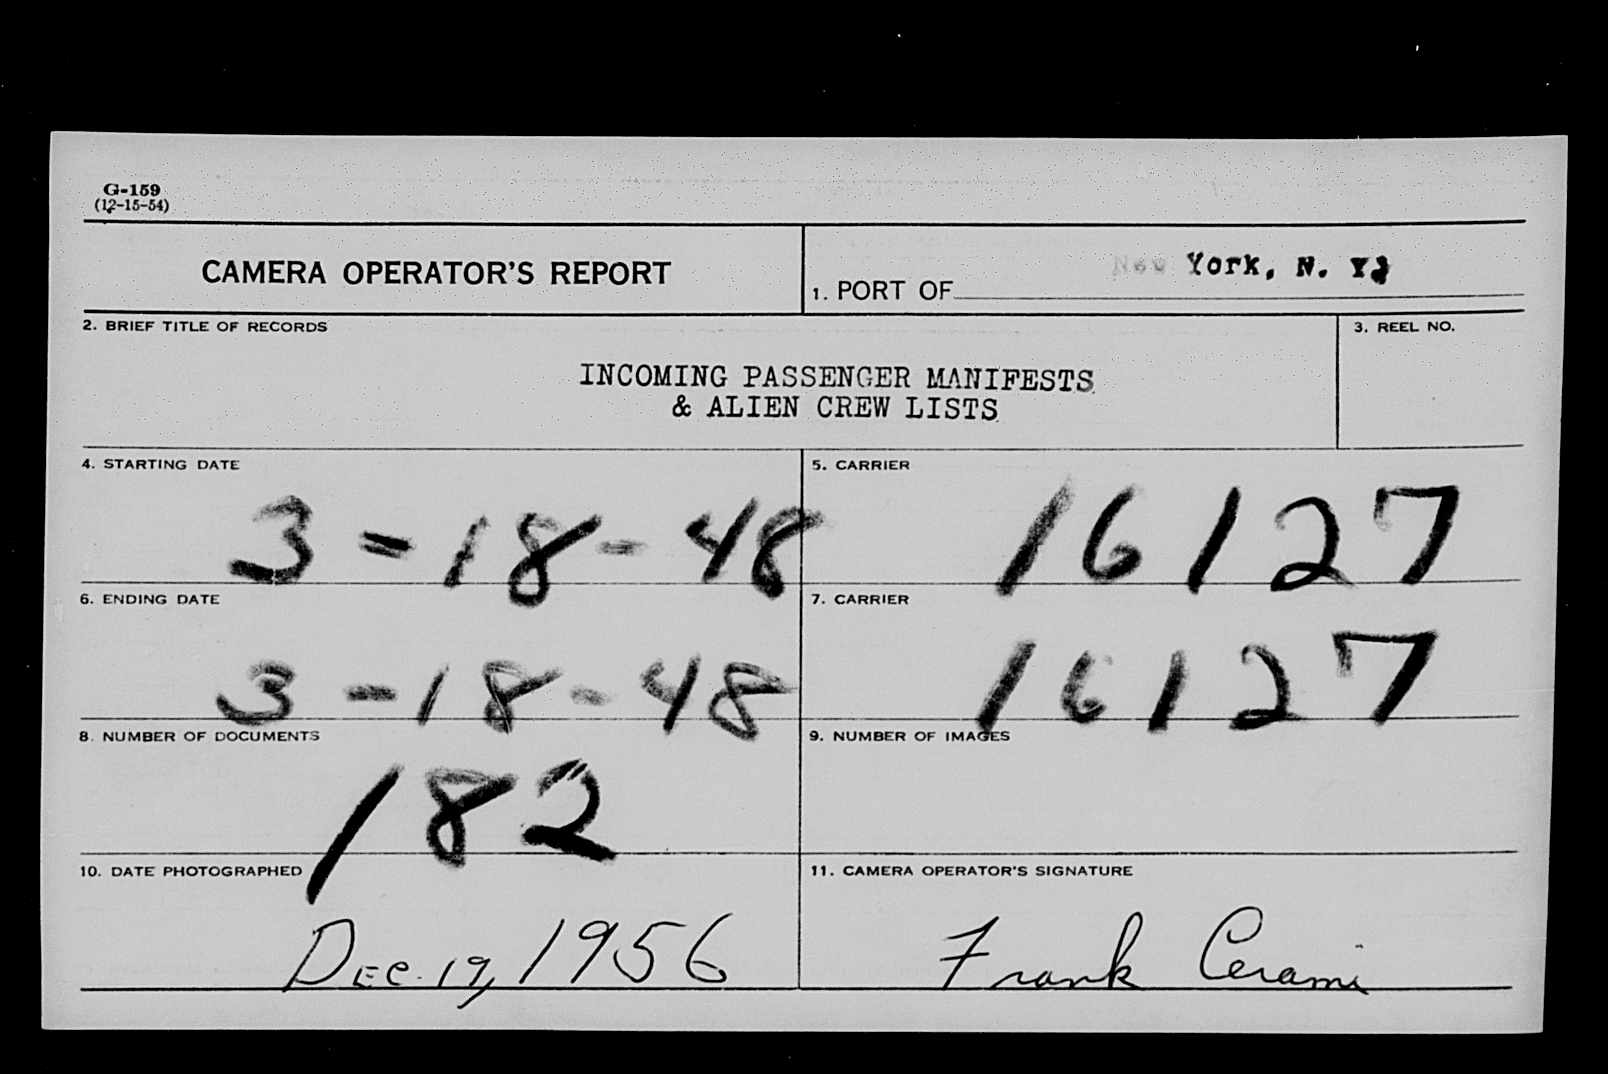 G-159
(12-15-54)
CAMERA OPERATOR'S REPORT
1. PORT OF New York, N. Y.
2. BRIEF TITLE OF RECORDS
INCOMING PASSENGER MANIFESTS
& ALIEN CREW LISTS
3. REEL NO.
4. STARTING DATE
3-18-48
5. CARRIER
16127
6. ENDING DATE
3-18-48
7. CARRIER
16127
8. NUMBER OF DOCUMENTS
182
9. NUMBER OF IMAGES
10. DATE PHOTOGRAPHED
Dec. 19, 1956
11. CAMERA OPERATOR'S SIGNATURE
Frank Cerami